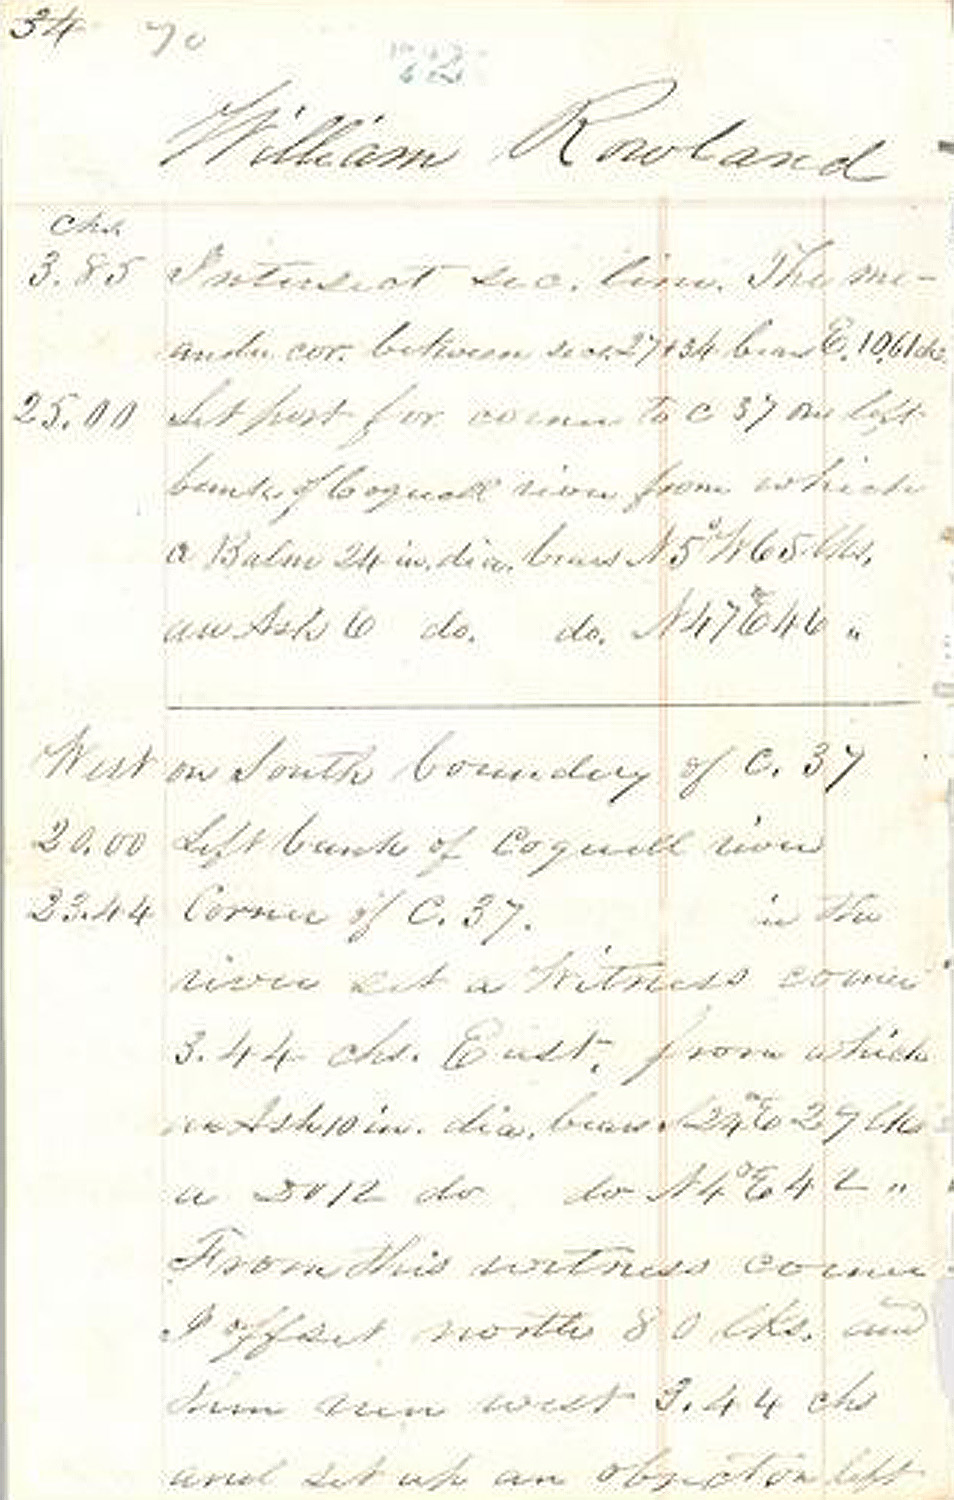 34 70
William Rowland
chs.
3.85 Intersect sec. line. The me-
ander cor. between secs. 27 & 34 bears E. 10.61 chs.
25.00 Set post for corner to C 37 on left
bank of Coquell river from which
a Balm 24 in. dia. bears N 5° W 65 lks.
an Ash 6 do. do. N 47° E 46 "
West on South boundery of C. 37
20.00 Left bank of Coquell river
23.44 Corner of C. 37. in the
river set a Witness corner
3.44 chs. East, from which
an Ash 10 in. dia. bears 24° E 29 lks
a Do 12 do do N 4° E 42 "
From this witness corner
I offset north 80 lks. and
then run west 3.44 chs
and set up an object on left